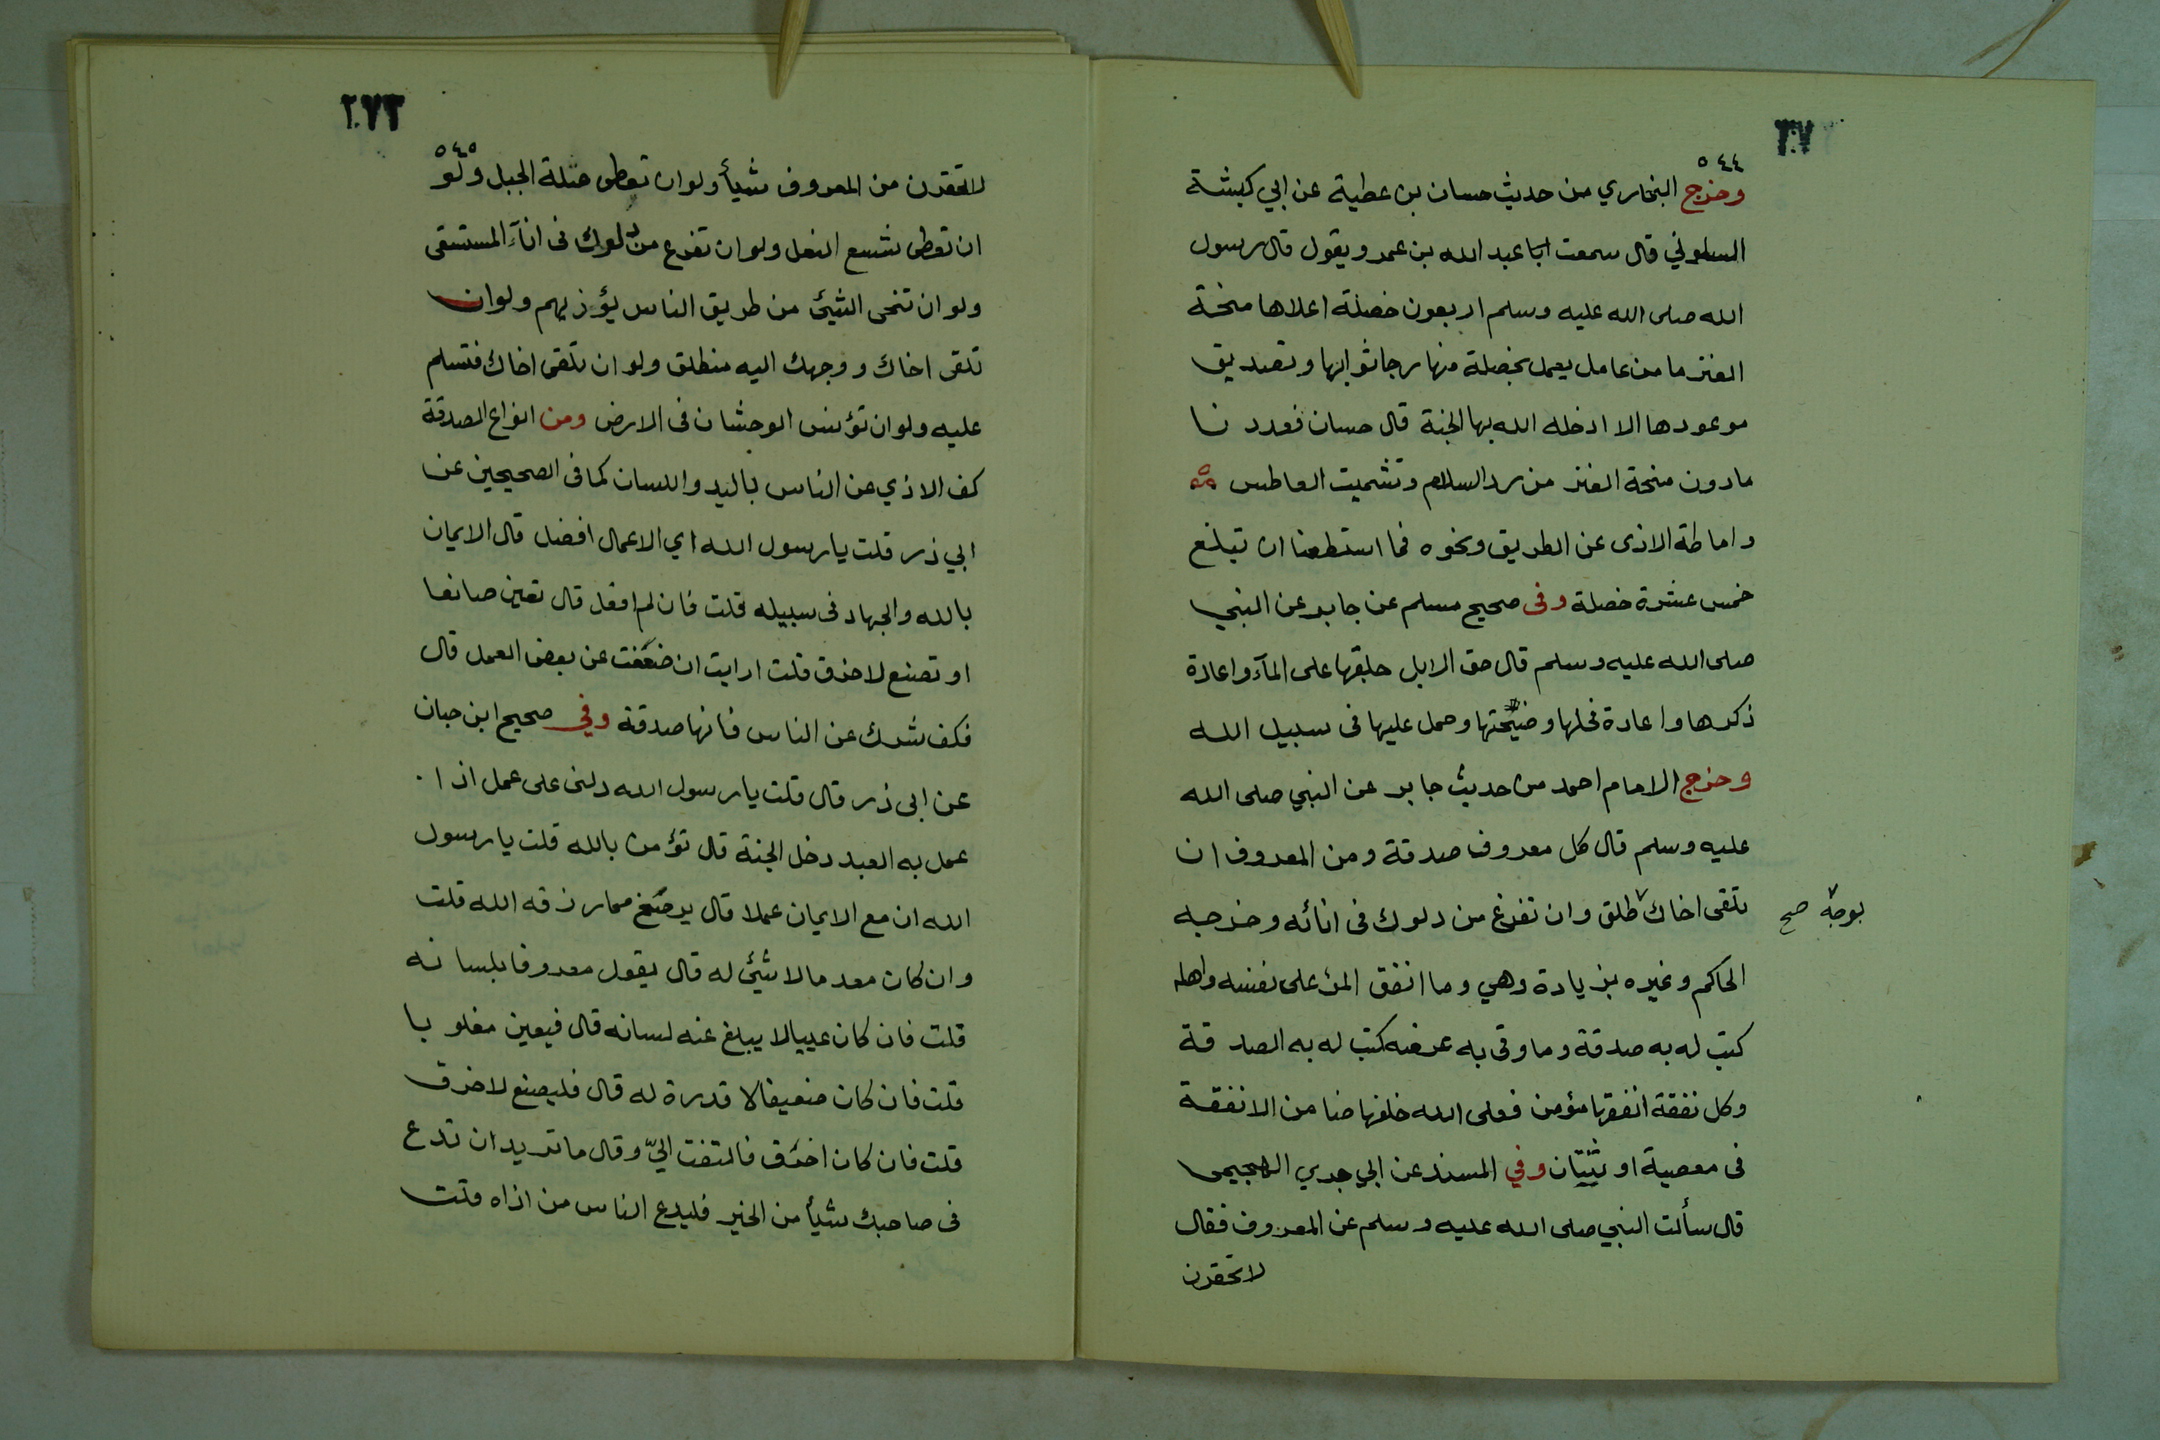 ٥٤٤
وخرج البخاري من حديث حسان بن عطية عن ابي كبشة
السلولي قال سمعت ابا عبد الله بن عمرو يقول قال رسول
الله صلى الله عليه وسلم اربعون خصلة اعلاها منحة
العنز ما من عامل يعمل بخصلة منها رجا ثوابها وتصديق
موعودها الا ادخله الله بها الجنة قال حسان فعددنا
مادون منحة العنز من رد السلام وتشميت العاطس
واماطة الاذى عن الطريق ونحوه فما استطعنا ان تبلغ
خمس عشرة خصلة وفى صحيح مسلم عن جابر عن النبي
صلى الله عليه وسلم قال حق الابل حلبها على المآء واعادة
ذكرها واعادة فحلها ومنيحتها وحمل عليها فى سبيل الله
وخرج الامام احمد من حديث جابر عن النبي صلى الله
عليه وسلم قال كل معروف صدقة ومن المعروف ان
تلقى اخاك طلق وان تفرغ من دلوك فى انائه وخرجه
بوجه صح
الحاكم وغيره بزيادة وهي وما انفق المرء على نفسه واهله
كتب له به صدقة وما وقى به عرضه كتب له به الصدقة
وكل نفقة انفقها مؤمن فعلى الله خلفها ضامن الا نفقة
فى معصية او بنيان وفي المسند عن ابي جري الهجيمى
قال سألت النبي صلى الله عليه وسلم عن المعروف فقال
لا تحقرن
٢٧٣
٥٤٥
لا تحقرن من المعروف شيأ ولو ان تعطى صلة الحبل ولو
ان تعطى شسع النعل ولو ان تفرغ من دلوك فى انآء المستسقى
ولو ان تنحى الشيئ من طريق الناس يؤذيهم ولو ان
تلقى اخاك ووجهك اليه منطلق ولو ان تلقى اخاك فتسلم
عليه ولو ان تؤنس الوحشان فى الارض ومن انواع الصدقة
كف الاذي عن الناس باليد واللسان كما فى الصحيحين عن
ابي ذر قلت يا رسول الله اي الاعمال افضل قال الايمان
بالله والجهاد فى سبيله قلت فان لم افعل قال تعين صانعا
او تصنع لاخرق قلت ارايت ان ضعفت عن بعض العمل قال
فكف شرك عن الناس فانها صدقة وفي صحيح ابن حبان
عن ابى ذر قال قلت يا رسول الله دلنى على عمل اذا
عمل به العبد دخل الجنة قال تؤمن بالله قلت يا رسول
الله ان مع الايمان عملا قال يرضخ مما رزقه الله قلت
وان كان معدما لا شيئ له قال يقول معروفا بلسانه
قلت فان كان عييا لا يبلغ عنه لسانه قال فيعين مغلوبا
قلت فان كان ضعيفا لا قدرة له قال فليصنع لاخرق
قلت فان كان اخرق فالتفت اليّ وقال ما تريد ان تدع
فى صاحبك شيأ من الخير فليدع الناس من اذاه قلت